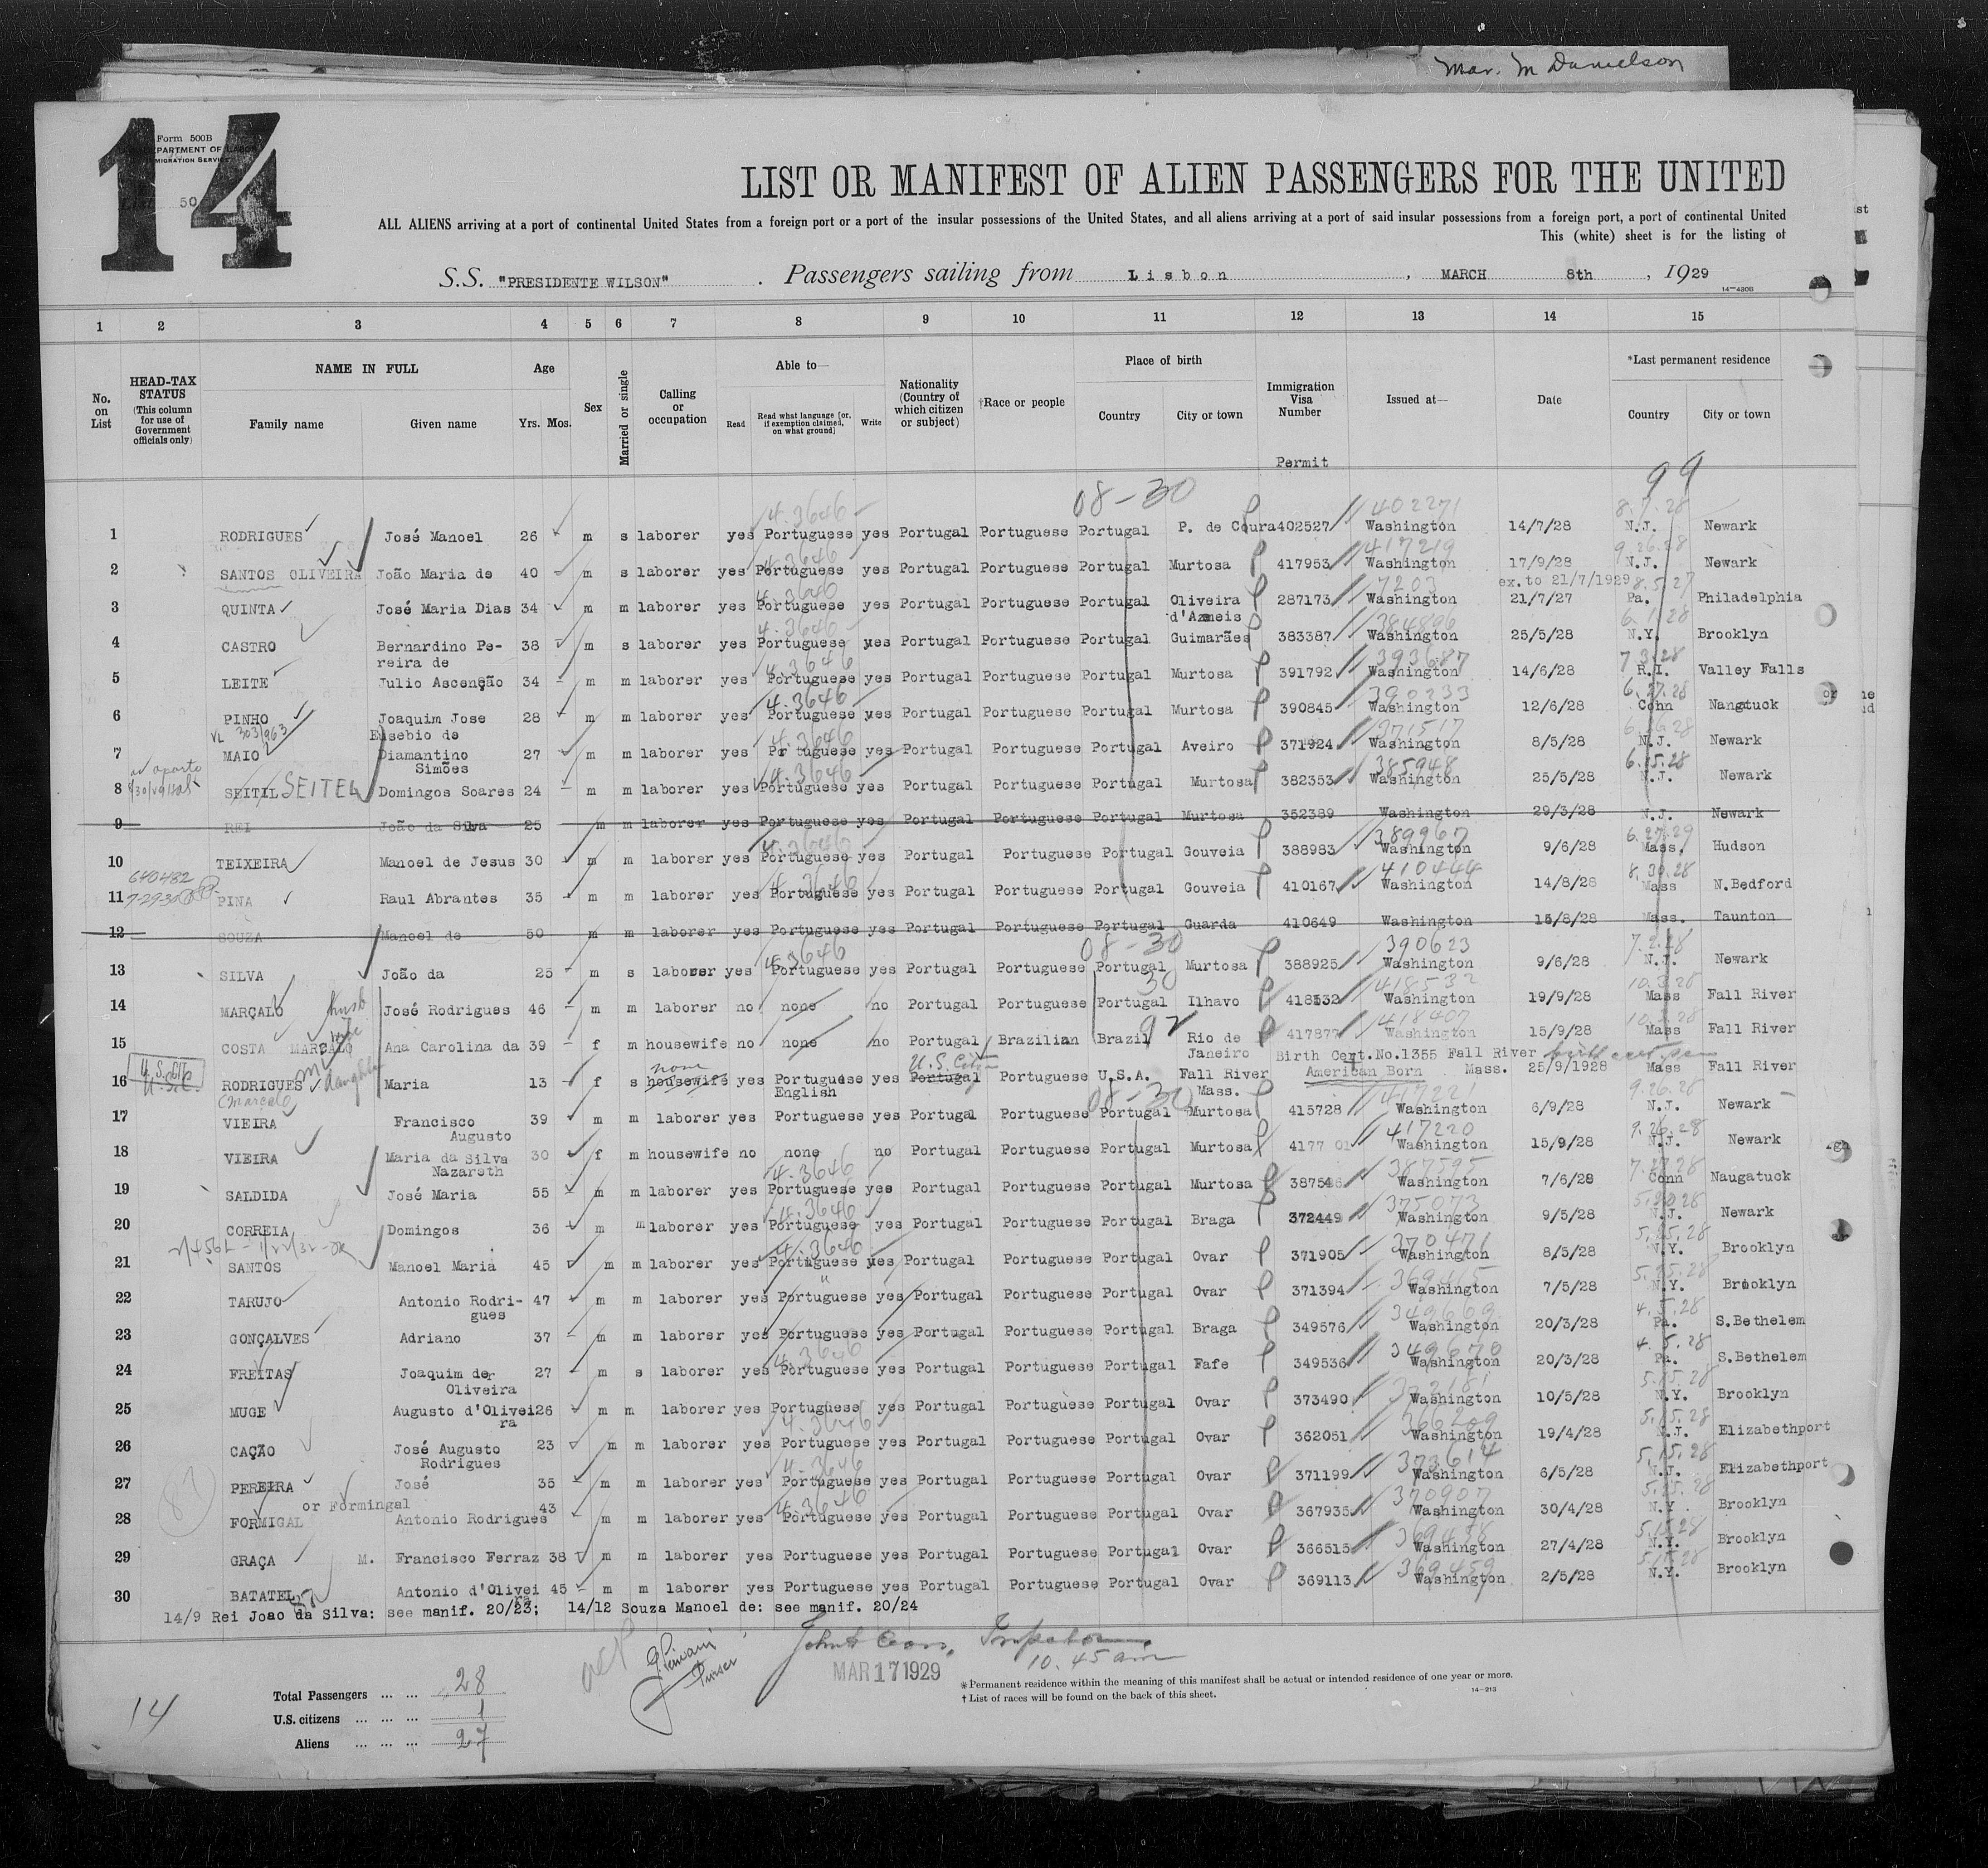 Mar. M Danielson
14
Form 500B
DEPARTMENT OF LABOR
IMMIGRATION SERVICE
LIST OR MANIFEST OF ALIEN PASSENGERS FOR THE UNITED
ALL ALIENS arriving at a port of continental United States from a foreign port or a port of the insular possessions of the United States, and all aliens arriving at a port of said insular possessions from a foreign port, a port of continental United
This (white) sheet is for the listing of
S.S. "PRESIDENTE WILSON" . Passengers sailing from Lisbon , MARCH 8th , 1929
14—430B
1 2 3 4 5 6 7 8 9 10 11 12 13 14 15
No. on List
HEAD-TAX STATUS (This column for use of Government officials only)
NAME IN FULL Family name Given name
Age Yrs. Mos.
Sex
Married or single
Calling or occupation
Able to— Read Read what language [or, if exemption claimed, on what ground] Write
Nationality (Country of which citizen or subject)
†Race or people
Place of birth Country City or town
Immigration Visa Number Permit
Issued at—
Date
*Last permanent residence Country City or town
99
08-30
4.3646 402271 8.7.28
1 RODRIGUES José Manoel 26 m s laborer yes Portuguese yes Portugal Portuguese Portugal P. de Coura 402527 Washington 14/7/28 N.J. Newark
4.3646 417219 9.26.28
2 SANTOS OLIVEIRA João Maria de 40 m s laborer yes Portuguese yes Portugal Portuguese Portugal Murtosa 417953 Washington 17/9/28 N.J. Newark
4.3646 7203 ex.to 21/7/1929 8.5.27
3 QUINTA José Maria Dias 34 m m laborer yes Portuguese yes Portugal Portuguese Portugal Oliveira d'Azmeis 287173 Washington 21/7/27 Pa. Philadelphia
4.3646 384896 6.1.28
4 CASTRO Bernardino Pereira de 38 m s laborer yes Portuguese yes Portugal Portuguese Portugal Guimarães 383387 Washington 25/5/28 N.Y. Brooklyn
4.3646 393687 7.3.28
5 LEITE Julio Ascenção 34 m m laborer yes Portuguese yes Portugal Portuguese Portugal Murtosa 391792 Washington 14/6/28 R.I. Valley Falls
4.3646 390233 6.27.28
6 PINHO Joaquim Jose Eusebio de 28 m m laborer yes Portuguese yes Portugal Portuguese Portugal Murtosa 390845 Washington 12/6/28 Conn Nangatuck
VL 303/963 4.3646 371517
7 MAIO Diamantino Simões 27 m m laborer yes Portuguese yes Portugal Portuguese Portugal Aveiro 371924 Washington 8/5/28 N.J. Newark
4.3646 385948 6.15.28
8 SEITIL SEITEL Domingos Soares 24 m m laborer yes Portuguese yes Portugal Portuguese Portugal Murtosa 382353 Washington 25/5/28 N.J. Newark
9 REI João da Silva 25 m m laborer yes Portuguese yes Portugal Portuguese Portugal Murtosa 352389 Washington 29/3/28 N.J. Newark
4.3646 389967 6.27.29
10 TEIXEIRA Manoel de Jesus 30 m m laborer yes Portuguese yes Portugal Portuguese Portugal Gouveia 388983 Washington 9/6/28 Mass. Hudson
640482 4.3646 410444 8.30.28
11 PINA Raul Abrantes 35 m m laborer yes Portuguese yes Portugal Portuguese Portugal Gouveia 410167 Washington 14/8/28 Mass N.Bedford
12 SOUZA Manoel de 50 m m laborer yes Portuguese yes Portugal Portuguese Portugal Guarda 410649 Washington 15/8/28 Mass. Taunton
4.3646 08-30 390623 7.2.28
13 SILVA João da 25 m s laborer yes Portuguese yes Portugal Portuguese Portugal Murtosa 388925 Washington 9/6/28 N.J. Newark
30 418532 10.3.28
14 MARÇALO husb José Rodrigues 46 m m laborer no none no Portugal Portuguese Portugal Ilhavo 418532 Washington 19/9/28 Mass Fall River
92 418407
15 COSTA MARÇALO wife Ana Carolina da 39 f m housewife no none no Portugal Brazilian Brazil Rio de Janeiro 417877 Washington 15/9/28 Mass Fall River
U.S. Cit. none U.S. Citizen Birth Cert.No.1355 Fall River
16 U.S.C. RODRIGUES (Marcalo) daughter Maria 13 f s housewife yes Portuguese English yes Portugal Portuguese U.S.A. Fall River Mass. American Born Mass. 25/9/1928 Mass Fall River
08-30 417221 9.26.28
17 VIEIRA Francisco Augusto 39 m m laborer yes Portuguese yes Portugal Portuguese Portugal Murtosa 415728 Washington 6/9/28 N.J. Newark
417220 9.26.28
18 VIEIRA Maria da Silva Nazareth 30 f m housewife no none no Portugal Portuguese Portugal Murtosa 417701 Washington 15/9/28 N.J. Newark
4.3646 387595
19 SALDIDA José Maria 55 m m laborer yes Portuguese yes Portugal Portuguese Portugal Murtosa 387546 Washington 7/6/28 Conn Naugatuck
4.3646 375073 5.20.28
20 CORREIA Domingos 36 m m laborer yes Portuguese yes Portugal Portuguese Portugal Braga 372449 Washington 9/5/28 N.J. Newark
4.3646 370471 5.25.28
21 SANTOS Manoel Maria 45 m m laborer yes Portuguese yes Portugal Portuguese Portugal Ovar 371905 Washington 8/5/28 N.Y. Brooklyn
" 5.15.28
22 TARUJO Antonio Rodrigues 47 m m laborer yes Portuguese yes Portugal Portuguese Portugal Ovar 371394 Washington 7/5/28 N.Y. Brooklyn
349669 4.5.28
23 GONÇALVES Adriano 37 m m laborer yes Portuguese yes Portugal Portuguese Portugal Braga 349576 Washington 20/3/28 Pa. S.Bethelem
4.3646 349670 4.5.28
24 FREITAS Joaquim de Oliveira 27 m s laborer yes Portuguese yes Portugal Portuguese Portugal Fafe 349536 Washington 20/3/28 Pa. S.Bethelem
5.15.28
25 MUGE Augusto d'Oliveira 26 m m laborer yes Portuguese yes Portugal Portuguese Portugal Ovar 373490 Washington 10/5/28 N.Y. Brooklyn
4.3646 366209 5.15.28
26 CAÇÃO José Augusto Rodrigues 23 m m laborer yes Portuguese yes Portugal Portuguese Portugal Ovar 362051 Washington 19/4/28 N.J. Elizabethport
4.3646 373614 5.15.28
27 PEREIRA José 35 m m laborer yes Portuguese yes Portugal Portuguese Portugal Ovar 371199 Washington 6/5/28 N.J. Elizabethport
or Formingal 4.3646 370907 5.25.28
28 FORMIGAL Antonio Rodrigues 43 m m laborer yes Portuguese yes Portugal Portuguese Portugal Ovar 367935 Washington 30/4/28 N.Y. Brooklyn
5.15.28
29 GRAÇA M. Francisco Ferraz 38 m m laborer yes Portuguese yes Portugal Portuguese Portugal Ovar 366515 Washington 27/4/28 N.Y. Brooklyn
369459 5.15.28
30 BATATEL Antonio d'Oliveira 45 m m laborer yes Portuguese yes Portugal Portuguese Portugal Ovar 369113 Washington 2/5/28 N.Y. Brooklyn
14/9 Rei Joao da Silva: see manif. 20/23; 14/12 Souza Manoel de: see manif. 20/24
Purser
Inspector
10.45 am
MAR 17 1929
*Permanent residence within the meaning of this manifest shall be actual or intended residence of one year or more.
†List of races will be found on the back of this sheet.
14—213
14
Total Passengers ... ... 28
U.S. citizens ... ... ... 1
Aliens ... ... ... 27